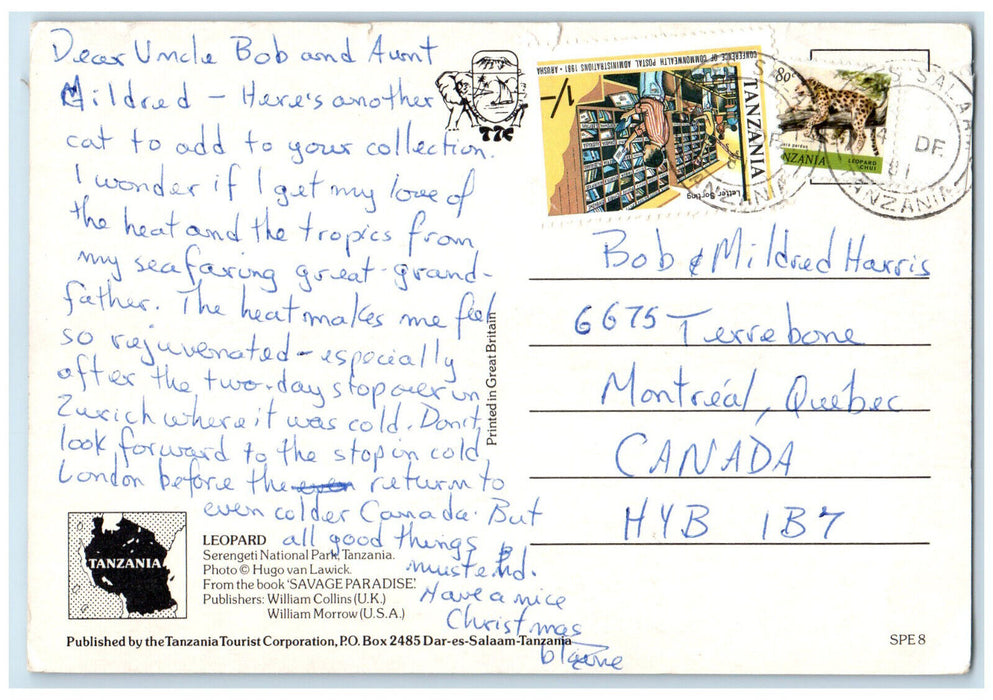 Dear Uncle Bob and Aunt
Mildred – Here's another
cat to add to your collection.
I wonder if I get my love of
the heat and the tropics from
my seafaring great-grand-
father. The heat makes me feel
so rejuvenated – especially
after the two-day stopover in
Zurich where it was cold. Don't
look forward to the stop in cold
London before the return to
even colder Canada. But
all good things
must end.
Have a nice
Christmas
blaine
LEOPARD
Serengeti National Park, Tanzania.
Photo © Hugo van Lawick.
From the book 'SAVAGE PARADISE'.
Publishers: William Collins (U.K.)
William Morrow (U.S.A.)
TANZANIA
Published by the Tanzania Tourist Corporation, P.O. Box 2485 Dar-es-Salaam-Tanzania
SPE 8
Printed in Great Britain
TTC
CONFERENCE OF COMMONWEALTH POSTAL ADMINISTRATIONS 1981 - ARUSHA
1/-
TANZANIA
Letter Sorting
80c
TANZANIA
LEOPARD
CHUI
S SALAAM
DE
81
TANZANIA
Bob & Mildred Harris
6675 Terrebone
Montréal, Quebec
CANADA
H4B 1B7